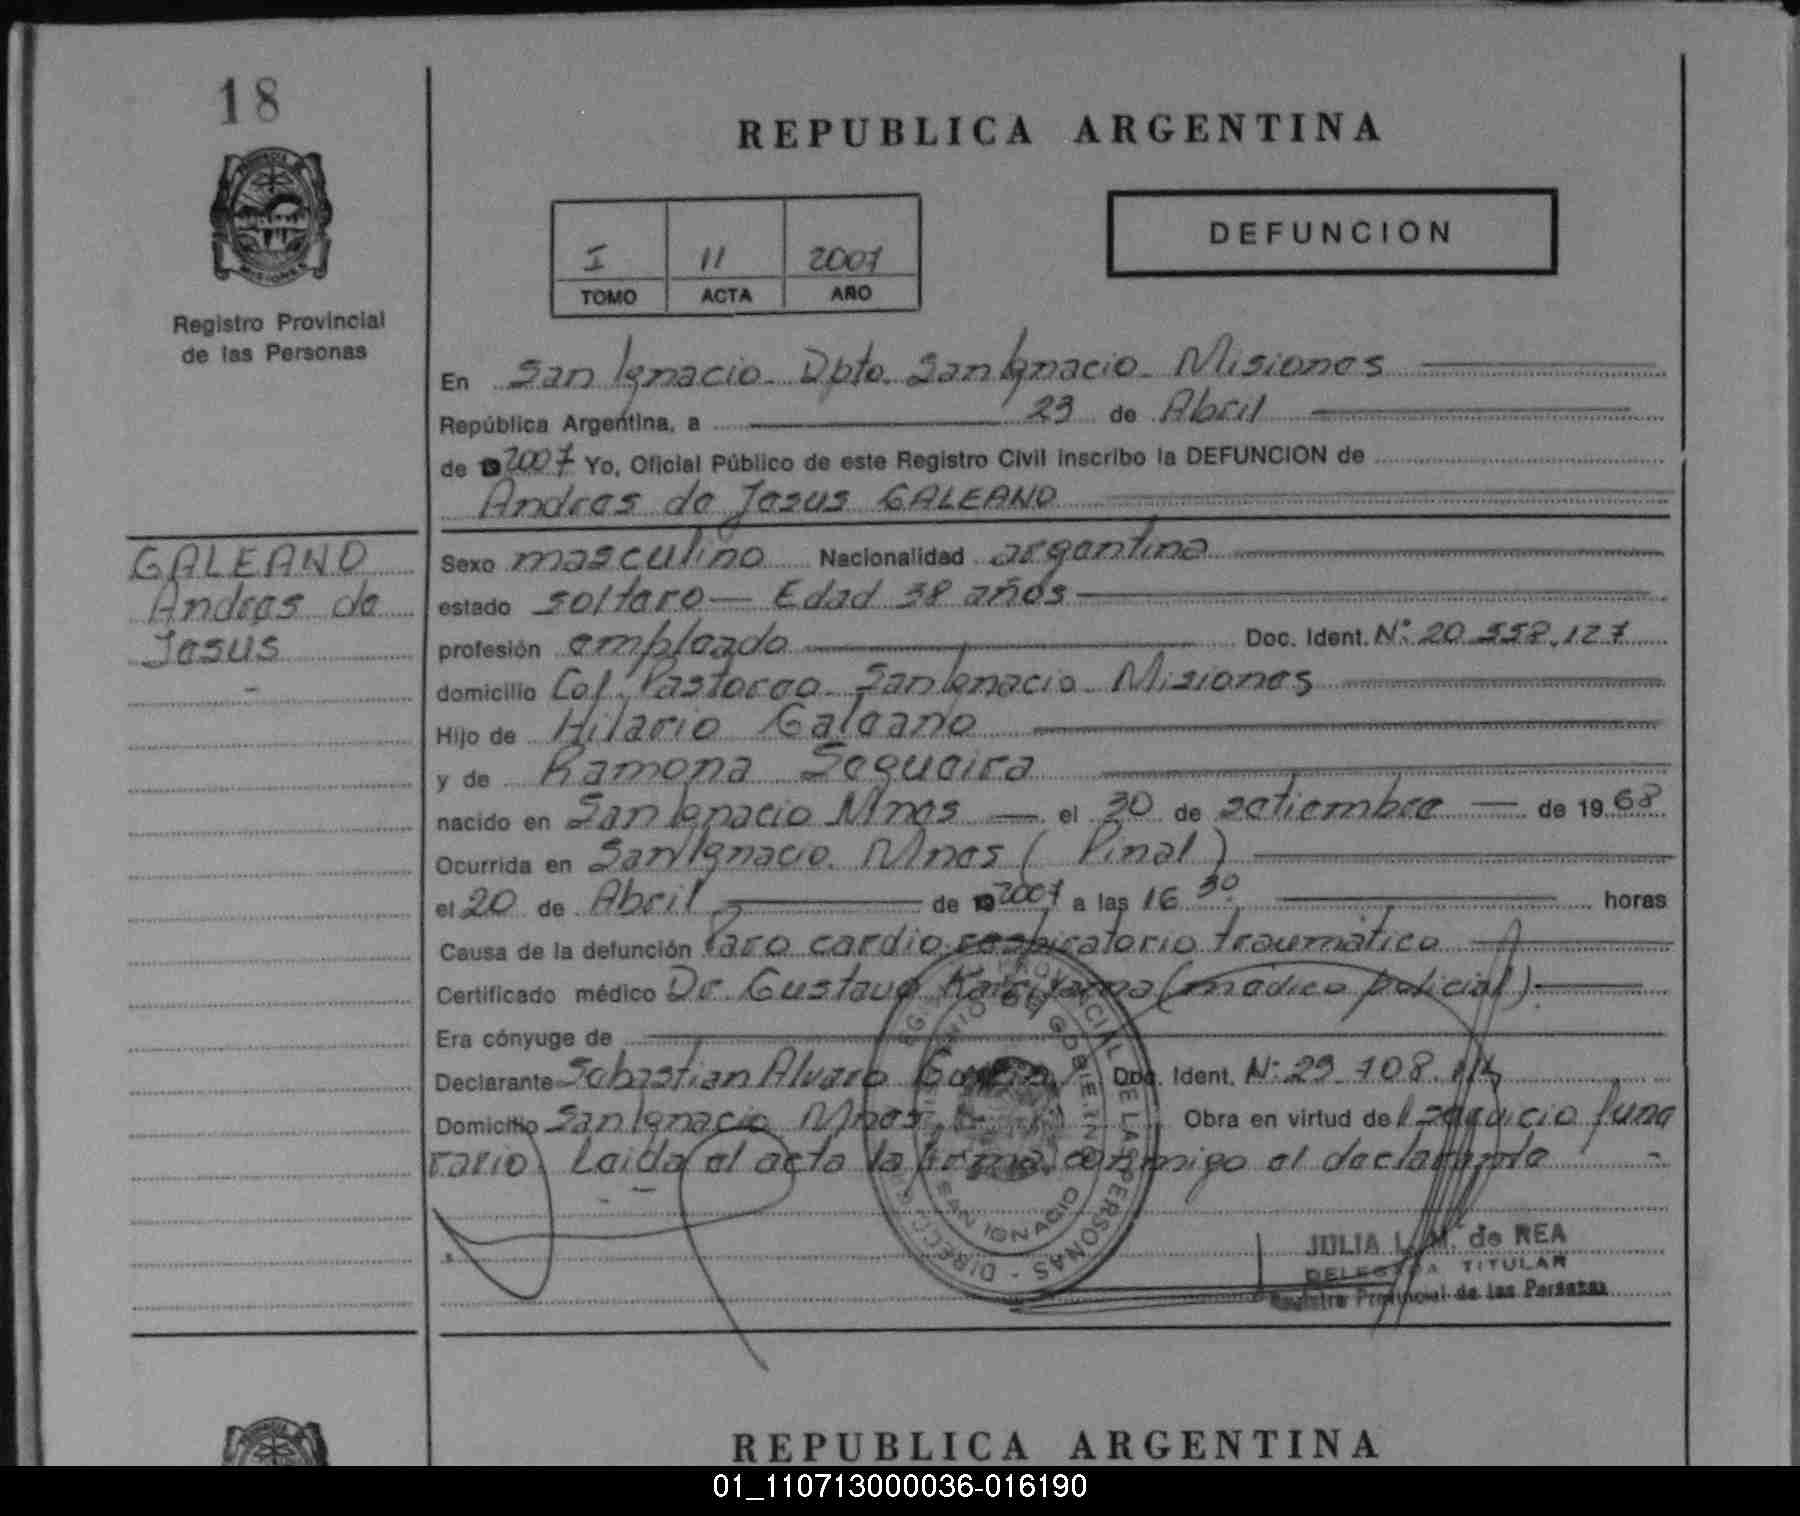 18
REPUBLICA ARGENTINA
DEFUNCION
I 11 2007
TOMO ACTA AÑO
MISIONES
Registro Provincial
de las Personas
En San Ignacio. Dpto. San Ignacio. Misiones
República Argentina, a 23 de Abril
de 2007 Yo, Oficial Público de este Registro Civil inscribo la DEFUNCION de
Andres de Jesus GALEANO
GALEANO
Andres de
Jesus
Sexo masculino Nacionalidad argentina
estado soltero — Edad 38 años
profesión empleado Doc. Ident. Nº 20.558.127
domicilio Col. Pastoreo. San Ignacio. Misiones
Hijo de Hilario Galeano
y de Ramona Sequeira
nacido en San Ignacio Mnes — el 30 de setiembre — de 1968
Ocurrida en San Ignacio. Mnes ( Pinal )
el 20 de Abril de 2007 a las 16 30 horas
Causa de la defunción Paro cardio respiratorio traumático
Certificado médico Dr. Gustavo (médico policial)
Era cónyuge de
Declarante Sebastian Alvaro Doc. Ident. Nº 29.108.
Domicilio San Ignacio Mnes. Obra en virtud del servicio fune
rario. Leida el acta la firma conmigo el declarante
PROVINCIAL DE LAS PERSONAS - DIRECC
SAN IGNACIO
JULIA L. M. de REA
DELEGADA TITULAR
Registro Provincial de las Personas
REPUBLICA ARGENTINA
01_110713000036-016190